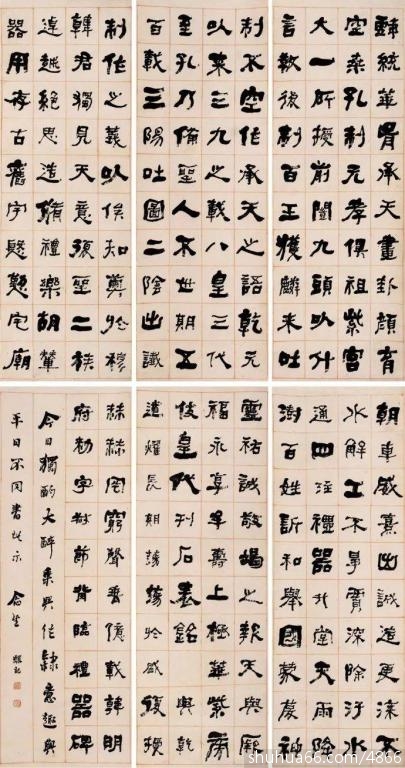 歸統華胥承天畫卦顏育
空桑孔制元孝俱祖紫宮
大一所授前闓九頭以什
言教後制百王獲麟來吐
制不空作承天之語乾元
以來三九之載八皇三代
至孔乃備聖人不世期五
百載三陽吐圖二陰出讖
制作之義以俟知奧於穆
韓君獨見天意復聖二族
逴越絕思造猶禮樂胡輦
器用存古舊宇慇懃宅廟
朝車威熹出誠造更漆不
水解工不爭賈深除汙水
通四注禮器升堂天雨降
澍百姓訢和舉國蒙慶神
靈祐誠敬竭之報天與厥
福永享牟壽上極華紫旁
伎皇代刊石表銘與乾
運燿長期蕩蕩於盛復授
赫赫罔窮聲垂億載韓明
府勑字叔節背臨禮器碑
今日獨酌大醉乘興作隸意趣與
平日不同書以示
念生 耀記
shuhua66.com/4866